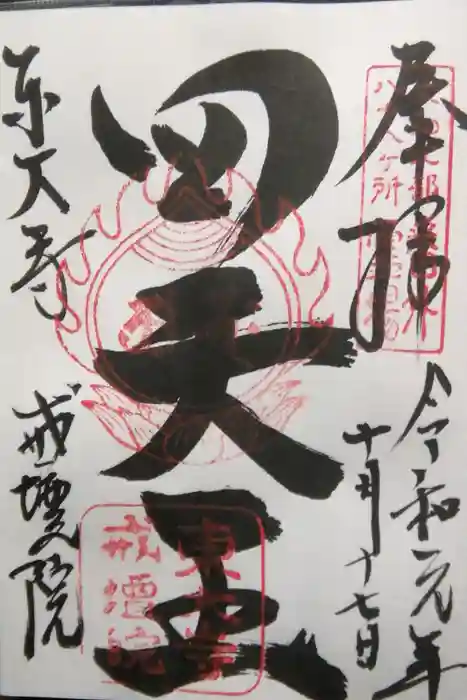 奉拝
令和元年
十月十七日
四天王
東大寺
戒壇院
東大寺
戒壇院